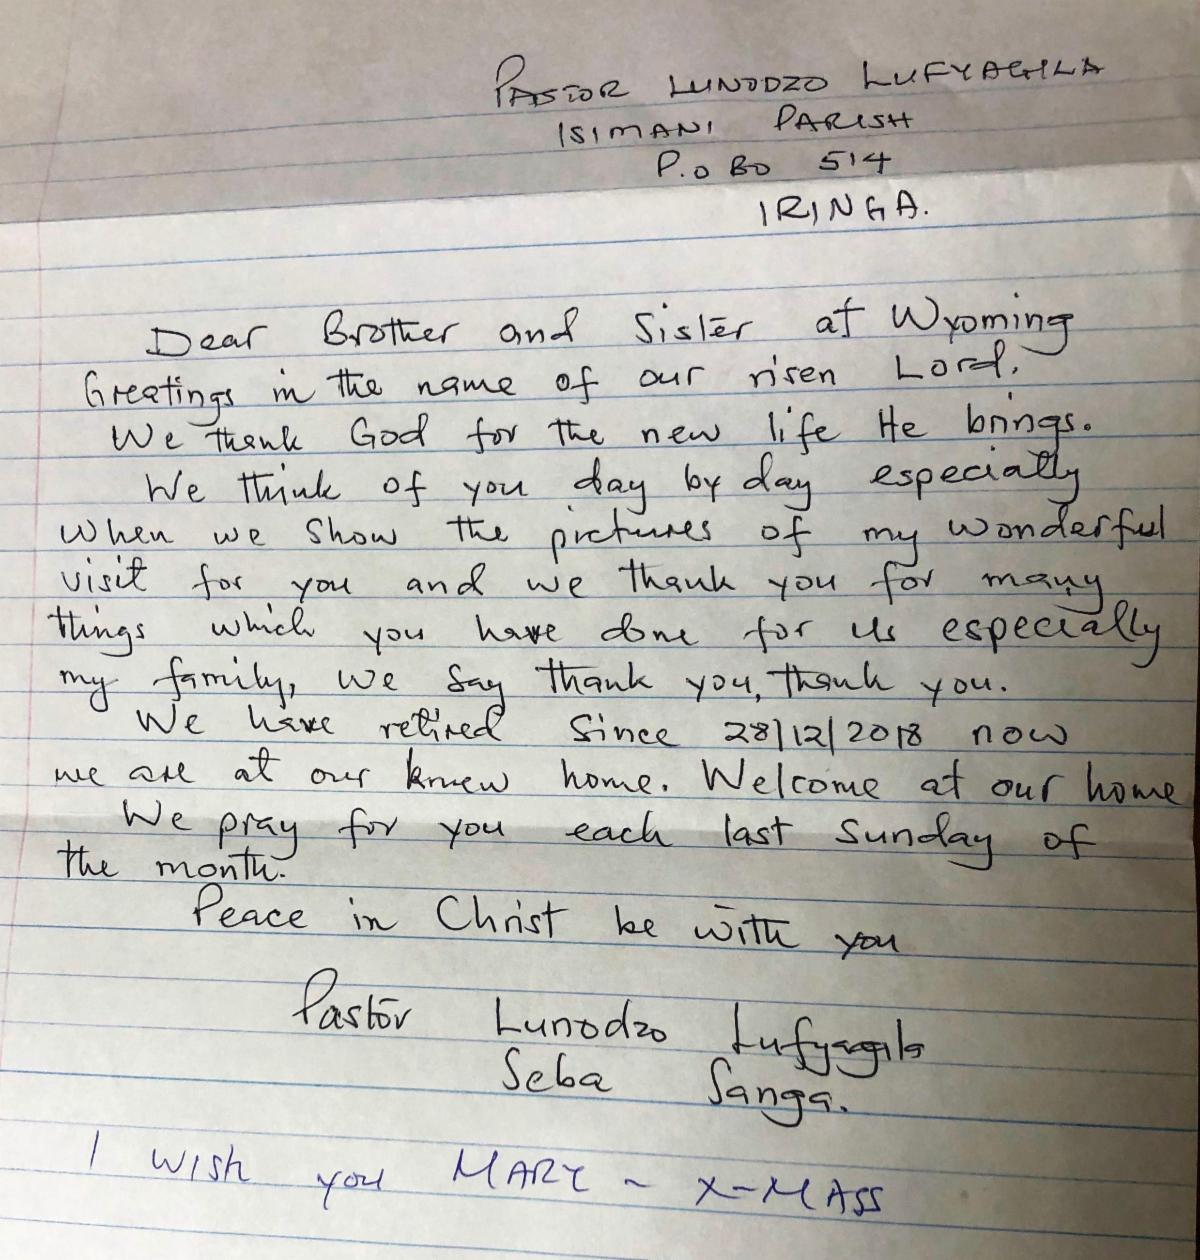 PASTOR LUNODZO LUFYAGILA
ISIMANI PARISH
P.O BO 514
IRINGA.
Dear Brother and Sister at Wyoming
Greetings in the name of our risen Lord.
We thank God for the new life He brings.
We think of you day by day especially
when we show the pictures of my wonderful
visit for you and we thank you for many
things which you have done for us especially
my family, we say thank you, thank you.
We have retired since 28/12/2018 now
we are at our knew home. Welcome at our home
We pray for you each last Sunday of
the month.
Peace in Christ be with you
Pastor Lunodzo Lufyagila
Seba Sanga.
I WISH you MARY ~ X-MASS